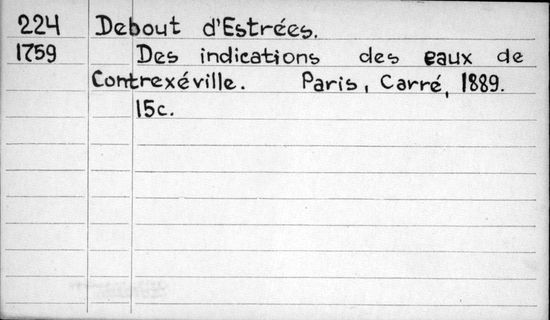 224 Debout d'Estrées.
1759 Des indications des eaux de
Contrexéville. Paris, Carré, 1889.
15c.